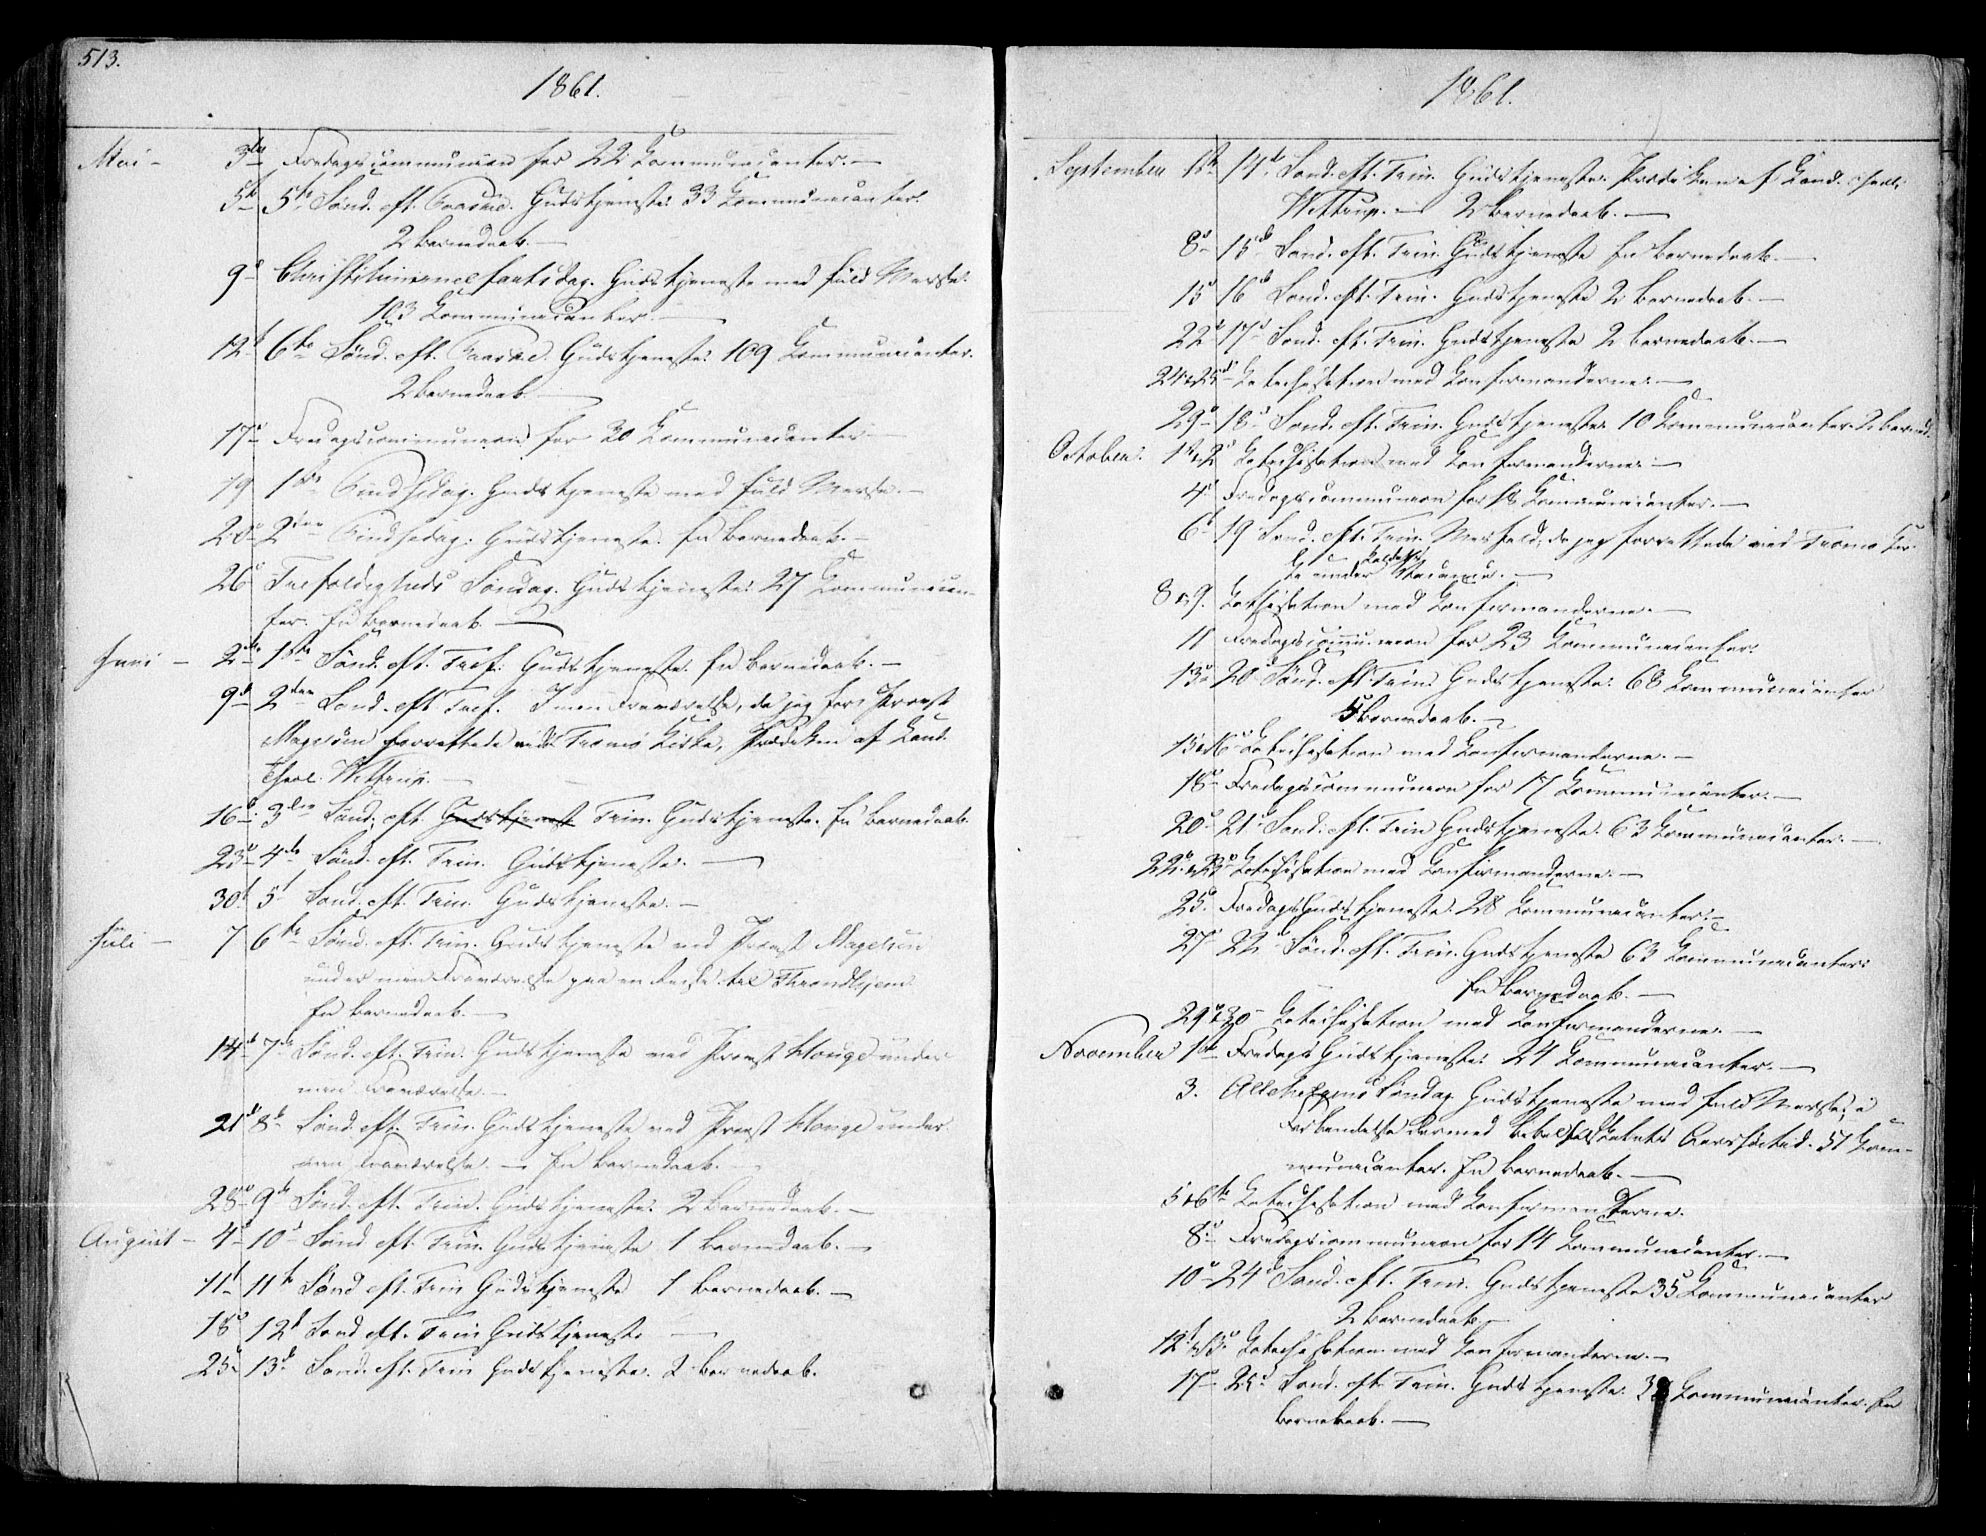 513.
1861.
Mai - 3die Fredagscommunion for 22 Communicanter. -
5te 5te Sønd. eft. Paaske. Gudstjeneste: 33 Communicanter.
2 Barnedaab. -
9d Christi himmelfartsdag. Gudstjeneste med fuld Messe.
103 Communicanter. -
12t 6te Sønd. eft. Paaske. Gudstjeneste: 109 Communicanter.
2 Barnedaab -
17d Fredagscommunion for 30 Communicanter -
19 1ste Pindsedag. Gudstjeneste med fuld Messe. -
20d 2den Pindsedag. Gudstjeneste. En Barnedaab. -
26d Trefoldigheds Søndag. Gudstjeneste: 27 Communican-
ter. En Barnedaab -
Juni - 2den 1ste Sønd. eft. Tref. Gudstjeneste. En Barnedaab. -
9d 2den Sønd. eft Tref. I min Fraværelse, da jeg for Provst
Magelsøn forrettede ved Tromø Kirke, Prædiken af Cand.
Theol. Wettrup. -
16d 3die Sønd. eft. Gudstjenest Trin. Gudstjeneste. En Barnedaab.
23d 4de Sønd. eft. Trin. Gudstjeneste. -
30t 5t Sønd. eft. Trin. Gudstjeneste. -
Juli - 7 6te Sønd. eft. Trin. Gudstjeneste ved Provst Magelsøn
under min Fraværelse paa en Reise til Throndhjem.
En Barnedaab. -
14d 7de Sønd. eft. Trin. Gudstjeneste ved Provst Houge under
min Fraværelse. -
21d 8d Sønd. eft. Trin. Gudstjeneste ved Provst Houge under
min Fraværelse. - En Barnedaab. -
28d 9d Sønd. eft. Trin. Gudstjeneste. 2 Barnedaab. -
August - 4d 10d Sønd eft. Trin. Gudstjeneste 1 Barnedaab. -
11t 11te Sønd eft. Trin Gudstjeneste 1 Barnedaab. -
18d 12t Sønd eft. Trin Gudstjeneste -
25d 13d Sønd. eft. Trin Gudstjeneste. 2 Barnedaab.
1861.
September 1ste 14d Sønd. eft. Trin. Gudstjeneste. Prædiken af Cand. theol.
Wettrup. - 2 Barnedaab. -
8d 15d Sønd. eft. Trin. Gudstjeneste En Barnedaab. -
15d 16d Sønd. eft. Trin. Gudstjeneste 2 Barnedaab. -
22d 17d Sønd. eft. Trin. Gudstjeneste 2 Barnedaab. -
24 & 25d Catechisation med Confirmanderne. -
29d 18d Sønd. eft. Trin. Gudstjeneste. 10 Communicanter. 2 Barned.
October. 1 & 2d Catechisation med Confirmanderne. -
4d Fredagscommunion for 18 Communicanter. -
6t 19 Sønd. eft. Trin. Messefald, da jeg forrettede ved Tromø Kir-
ke under Kaldets Vacance. -
8 & 9. Catechisation med Confirmanderne. -
11 Fredagscommunion for 23 Communicanter.
13d 20d Sønd. eft Trin. Gudstjeneste: 68 Communicanter
5 Barnedaab. -
15 & 16d Catechisation med Confirmanderne. -
18d Fredagscommunion for 17 Communicanter. -
20d 21d Sønd. eft. Trin Gudstjeneste. 63 Communicanter. -
22d & 23d Catechisation med Confirmanderne. -
25d Fredagsgudstjeneste: 28 Communicanter: -
27d 22d Sønd. eft. Trin. Gudstjeneste 63 Communicanter.
En Barnedaab. -
29 & 30 - Catechisation med Confirmanderne. -
November 1ste Fredags Gudstjeneste: 24 Communicanter. -
3. Allehelgens Søndag Gudstjeneste med fuld Messe; i
Forbindelse dermed Bibelselskabets Aarshøitid. 51 Com-
municanter. En Barnedaab. -
5 & 6te Catechisation med Confirmanderne.
8d Fredagscommunion for 14 Communicanter. -
10d 24d Sønd. eft. Trin. Gudstjeneste 35 Communicanter
2 Barnedaab. -
12t & 13d Catechisation med Confirmanderne. -
17d 25d Sønd. eft. Trin. Gudstjeneste. Communicanter. En
Barnedaab. -